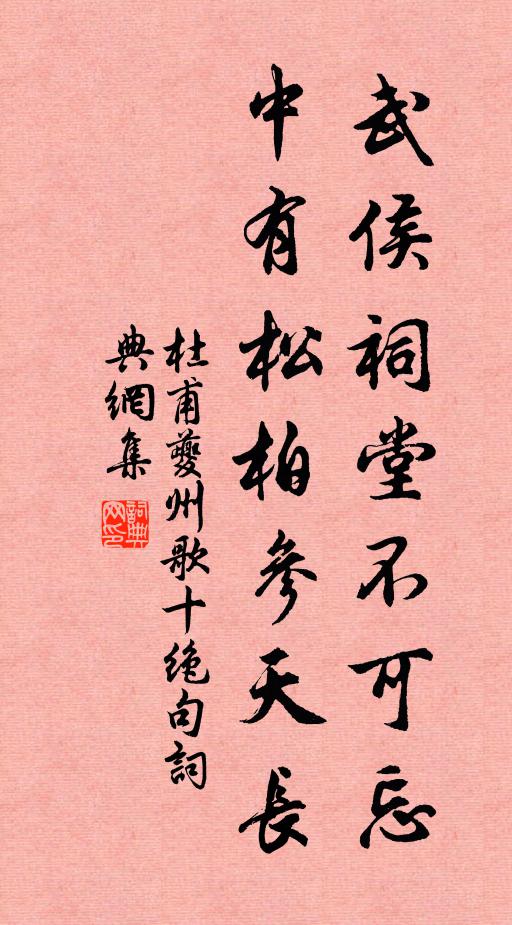 武侯祠堂不可忘
中有松柏參天長
杜甫夔州歌十絕句詞
典網集
詞典
网印